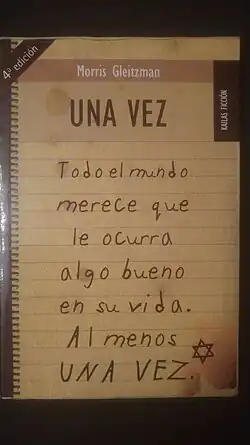 4ª edición
Morris Gleitzman
UNA VEZ
KAILAS FICCIÓN
Todo el mundo
merece que
le ocurra
algo bueno
en su vida.
Al menos
UNA VEZ.